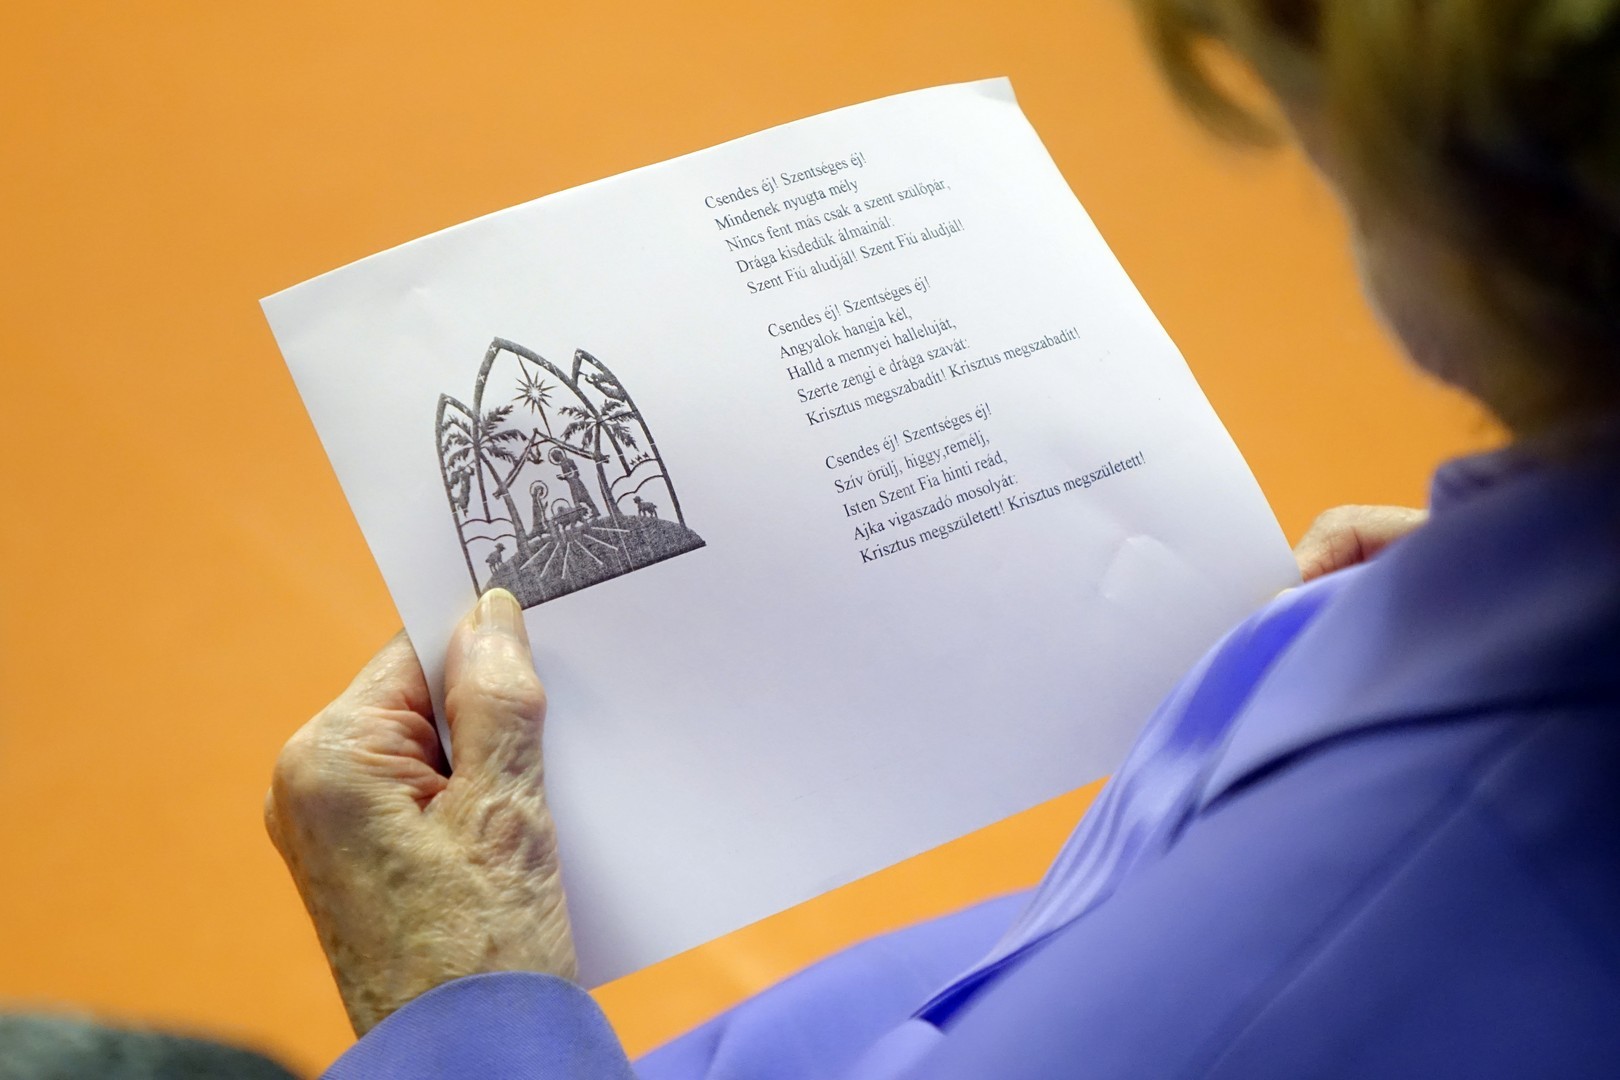 Csendes éj! Szentséges éj!
Mindenek nyugta mély
Nincs fent más csak a szent szülőpár,
Drága kisdedük álmainál:
Szent Fiú aludjál! Szent Fiú aludjál!
Csendes éj! Szentséges éj!
Angyalok hangja kél,
Halld a mennyei halleluját,
Szerte zengi e drága szavát:
Krisztus megszabadít! Krisztus megszabadít!
Csendes éj! Szentséges éj!
Szív örülj, higgy,remélj,
Isten Szent Fia hinti reád,
Ajka vigaszadó mosolyát:
Krisztus megszületett! Krisztus megszületett!